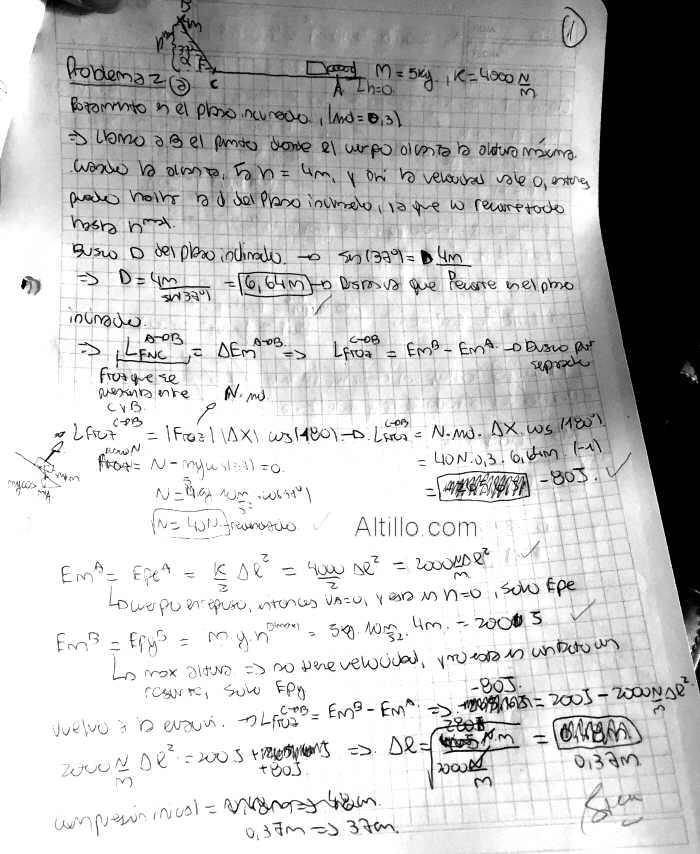 1
B
4m
37°
C
A
h=0
M = 5kg, K = 4000 N/m
Problema 2 (a)
Rozamiento en el plano inclinado, (md = 0,3)
⇒ Llamo a B el punto donde el cuerpo alcanza la altura máxima.
Cuando la alcanza, h = 4m, y ahí la velocidad vale 0, entonces
puedo hallar la d del plano inclinado, ya que lo recorre todo
hasta hmax.
Busco D del plano inclinado. → sen(37°) = 4m/D
⇒ D = 4m/sen(37°) = 6,64m → Distancia que recorre en el plano
inclinado.
⇒ L FNC A→B = ΔEm A→B ⇒ L Froz C→B = Em B - Em A → Busco por separado
Froz que se
presenta entre
C y B
N.md
L Froz C→B = |Froz| |ΔX| cos(180) → L Froz C→B = N.md. ΔX. cos(180°)
= N - mg cos(37) = 0.
= 40N.0,3. 6,64m (-1)
= -80J.
N = 40N
Altillo.com
Em A = Epe A = K/2 Δl² = 4000/2 Δl² = 2000 N/m Δl²
↳ cuerpo en reposo, entonces VA=0, y está en h=0, solo Epe
Em B = Epg B = m.g.h = 5kg.10m/s².4m. = 200 J
↳ max altura ⇒ no tiene velocidad, y no está en contacto con
resorte, solo Epg
Vuelvo a la ecuación. → L Froz C→B = Em B - Em A. ⇒ -80J. = 200J - 2000 N/m Δl²
2000 N/m Δl² = 200 J + 80J ⇒ Δl = √(280 N.m / 2000 N/m) = 0,37m
compresión inicial =
0,37m ⇒ 37cm.